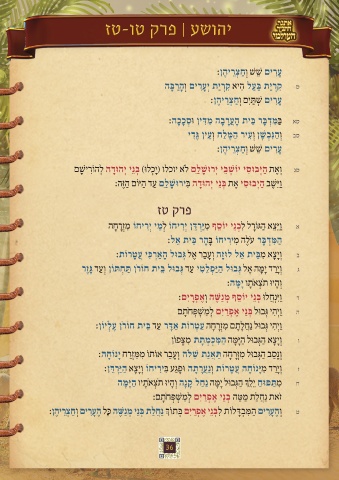 יהושע | פרק טו-טז
עָרִים שֵׁשׁ וְחַצְרֵיהֶן:
ס קִרְיַת בַּעַל הִיא קִרְיַת יְעָרִים וְהָרַבָּה
עָרִים שְׁתַּיִם וְחַצְרֵיהֶן:
סא בַּמִּדְבָּר בֵּית הָעֲרָבָה מִדִּין וּסְכָכָה:
סב וְהַנִּבְשָׁן וְעִיר הַמֶּלַח וְעֵין גֶּדִי
עָרִים שֵׁשׁ וְחַצְרֵיהֶן:
סג וְאֶת הַיְבוּסִי יוֹשְׁבֵי יְרוּשָׁלִַם לֹא יוכלו (יָכְלוּ) בְנֵי יְהוּדָה לְהוֹרִישָׁם
וַיֵּשֶׁב הַיְבוּסִי אֶת בְּנֵי יְהוּדָה בִּירוּשָׁלִַם עַד הַיּוֹם הַזֶּה:
פרק טז
א וַיֵּצֵא הַגּוֹרָל לִבְנֵי יוֹסֵף מִיַּרְדֵּן יְרִיחוֹ לְמֵי יְרִיחוֹ מִזְרָחָה
הַמִּדְבָּר עֹלֶה מִירִיחוֹ בָּהָר בֵּית אֵל:
ב וְיָצָא מִבֵּית אֵל לוּזָה וְעָבַר אֶל גְּבוּל הָאַרְכִּי עֲטָרוֹת:
ג וְיָרַד יָמָּה אֶל גְּבוּל הַיַּפְלֵטִי עַד גְּבוּל בֵּית חוֹרֹן תַּחְתּוֹן וְעַד גָּזֶר
וְהָיוּ תֹצְאֹתָו יָמָּה:
ד וַיִּנְחֲלוּ בְנֵי יוֹסֵף מְנַשֶּׁה וְאֶפְרָיִם:
ה וַיְהִי גְּבוּל בְּנֵי אֶפְרַיִם לְמִשְׁפְּחֹתָם
וַיְהִי גְּבוּל נַחֲלָתָם מִזְרָחָה עַטְרוֹת אַדָּר עַד בֵּית חוֹרֹן עֶלְיוֹן:
ו וְיָצָא הַגְּבוּל הַיָּמָּה הַמִּכְמְתָת מִצָּפוֹן
וְנָסַב הַגְּבוּל מִזְרָחָה תַּאֲנַת שִׁלֹה וְעָבַר אוֹתוֹ מִמִּזְרַח יָנוֹחָה:
ז וְיָרַד מִיָּנוֹחָה עֲטָרוֹת וְנַעֲרָתָה וּפָגַע בִּירִיחוֹ וְיָצָא הַיַּרְדֵּן:
ח מִתַּפּוּחַ יֵלֵךְ הַגְּבוּל יָמָּה נַחַל קָנָה וְהָיוּ תֹצְאֹתָיו הַיָּמָּה
זֹאת נַחֲלַת מַטֵּה בְנֵי אֶפְרַיִם לְמִשְׁפְּחֹתָם:
ט וְהֶעָרִים הַמִּבְדָּלוֹת לִבְנֵי אֶפְרַיִם בְּתוֹךְ נַחֲלַת בְּנֵי מְנַשֶּׁה כָּל הֶעָרִים וְחַצְרֵיהֶן:
36